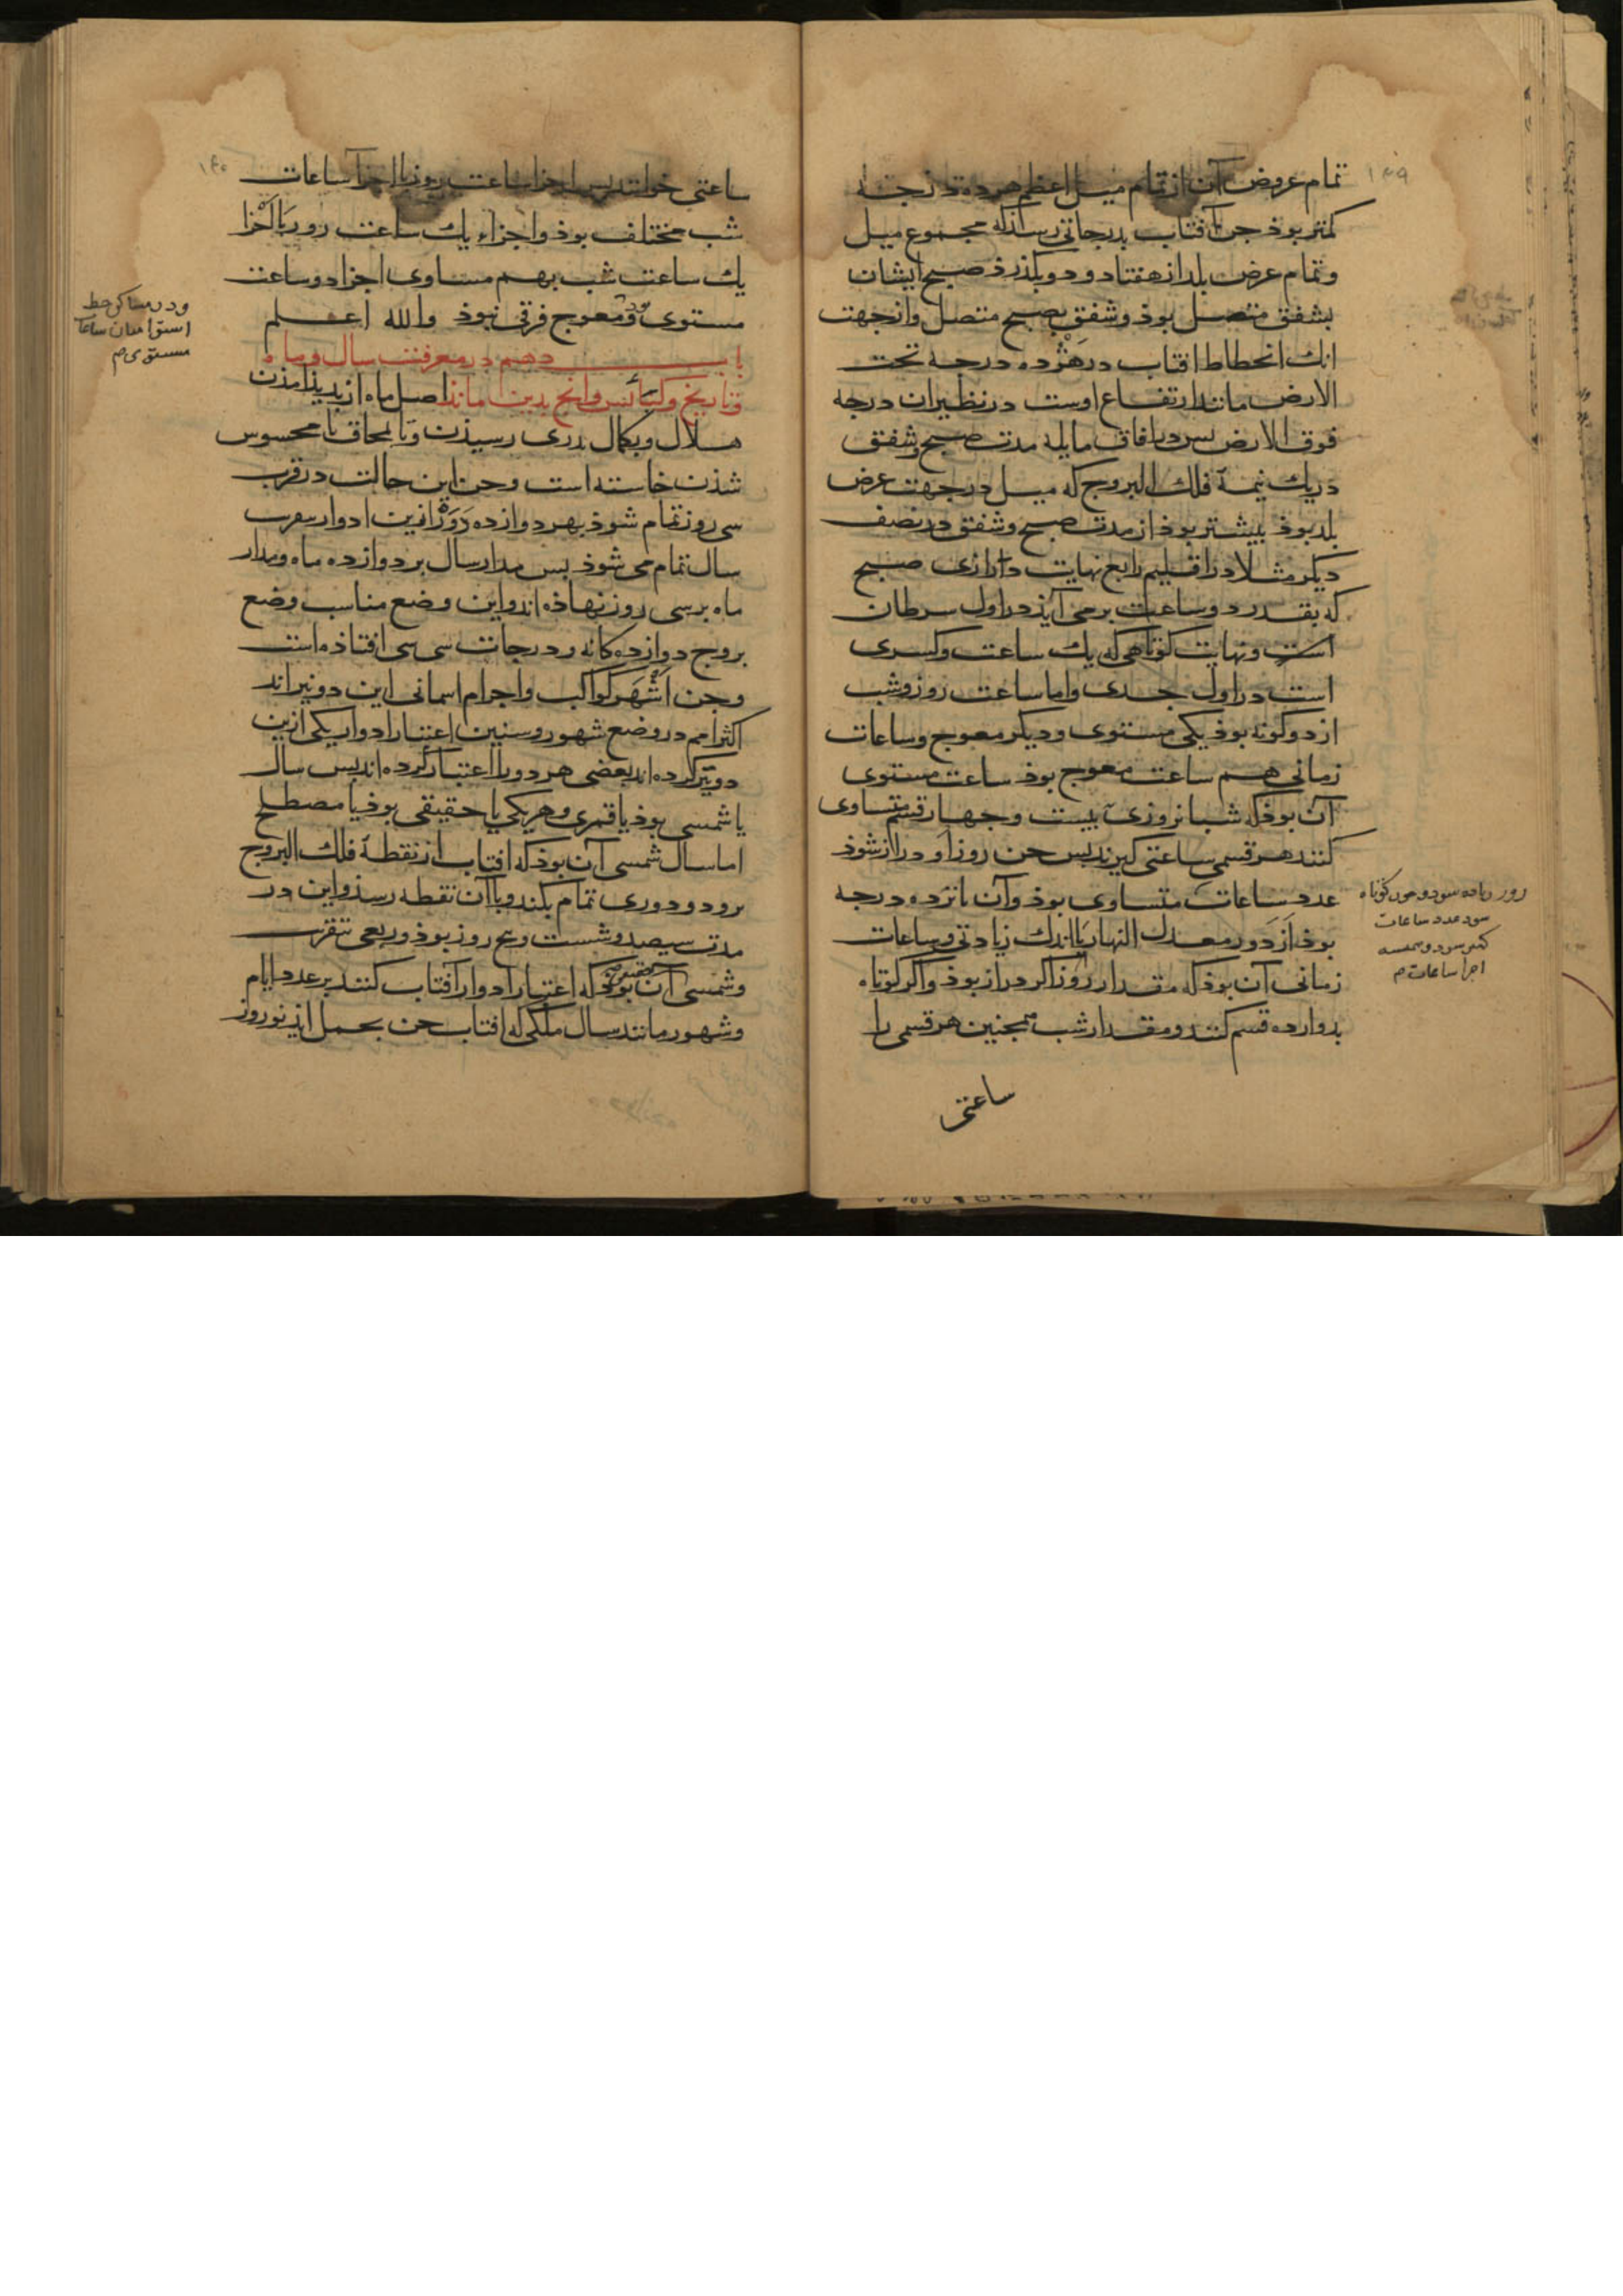 ۱۳۹
تمام عروض آن از تمام میل اعظم هرده درجه
کمتر بوذ جن آفتاب بدرجاتی رسذ که مجموع میل
وتمام عرض بلد از هفتاد و دو بکذرذ صبح ایشان
بشفق متصل بوذ وشفق بصبح متصل وازجهت
انک انحطاط افتاب در هژده درجه تحت
الارض مانند ارتفاع اوست در نظیر ان درجه
فوق الارض بس در افاق مایله مدت صبح وشفق
دریک نیمه فلک البروج که میل در جهت عرض
بلد بوذ بیشتر بوذ از مدت صبح وشفق در نصف
دیکر مثلا در اقلیم رابع نهایت درازی صبح
که بقدر دو ساعت برمی آیذ در اول سرطان
است ونهایت کوتاهی که یک ساعت وکسری
است در اول جدی واما ساعت روز وشب
از دو کونه بوذ یکی مستوی ودیکر معوج وساعات
زمانی هم ساعت معوج بوذ ساعت مستوی
آن بوذ که شبانروزی ببیست وجهار قسم متساوی
کنند هر قسمی ساعتی کیرند بس جن روز او دراز شوذ
عدد ساعات متساوی بوذ وآن بانزده درجه
بوذ از دور معدل النهار با اندک زیادتی وساعات
زمانی آن بوذ که مقدار روز اکر دراز بوذ واکر کوتاه
بدوازده قسم کنند ومقدار شب همجنین هر قسمی را
ساعتی
روز زیاده سود وجون کوتاه
سود عدد ساعات
کمتر سود وهمیسه
اجزا ساعات م
۱۴۰
ساعتی خوانند بس اجزا ساعت روز با اجزا ساعات
شب مختلف بوذ واجزاء یک ساعت روز با اجزا
یک ساعت شب بهم مساوی اجزا دو ساعت
مستوی بود ومعوج فرقی نبوذ والله اعلم
باب دهم در معرفت سال وماه
وتاریخ وکبائس وانج بدین ماند اصل ماه از بدیذ امذن
هلال وبکمال بدری رسیذن وبا محاق نا محسوس
شذن خاسته است وجن این حالت در قرب
سی روز تمام شوذ بهر دوازده دور ازین ادوار بقرب
سال تمام می شوذ بس مدار سال بر دوازده ماه ومدار
ماه بر سی روز نهاذه اند واین وضع مناسب وضع
بروج دوازده کانه ودرجات سی سی افتاذه است
وجن اشهر کواکب واجرام اسمانی این دو نیر اند
اکثر امم در وضع شهور وسنین اعتبار ادوار یکی ازین
دو نیر کرده اند بعضی هر دو را اعتبار کرده اند بس سال
یا شمسی بوذ یا قمری وهر یکی یا حقیقی بوذ یا مصطلح
اما سال شمسی آن بوذ که افتاب از نقطه فلک البروج
برود ودوری تمام بکند وباآن نقطه رسذ واین در
مدت سیصد وشست وبنج روز بوذ وربعی بتقریب
وشمسی آن بوذ که اعتبار ادوار آفتاب کنند بر عدد ایام
وشهور مانند سال ملکی که افتاب جن بحمل ایذ نوروز
ودر مساکن خط
استوا میان ساعات
مستوی م